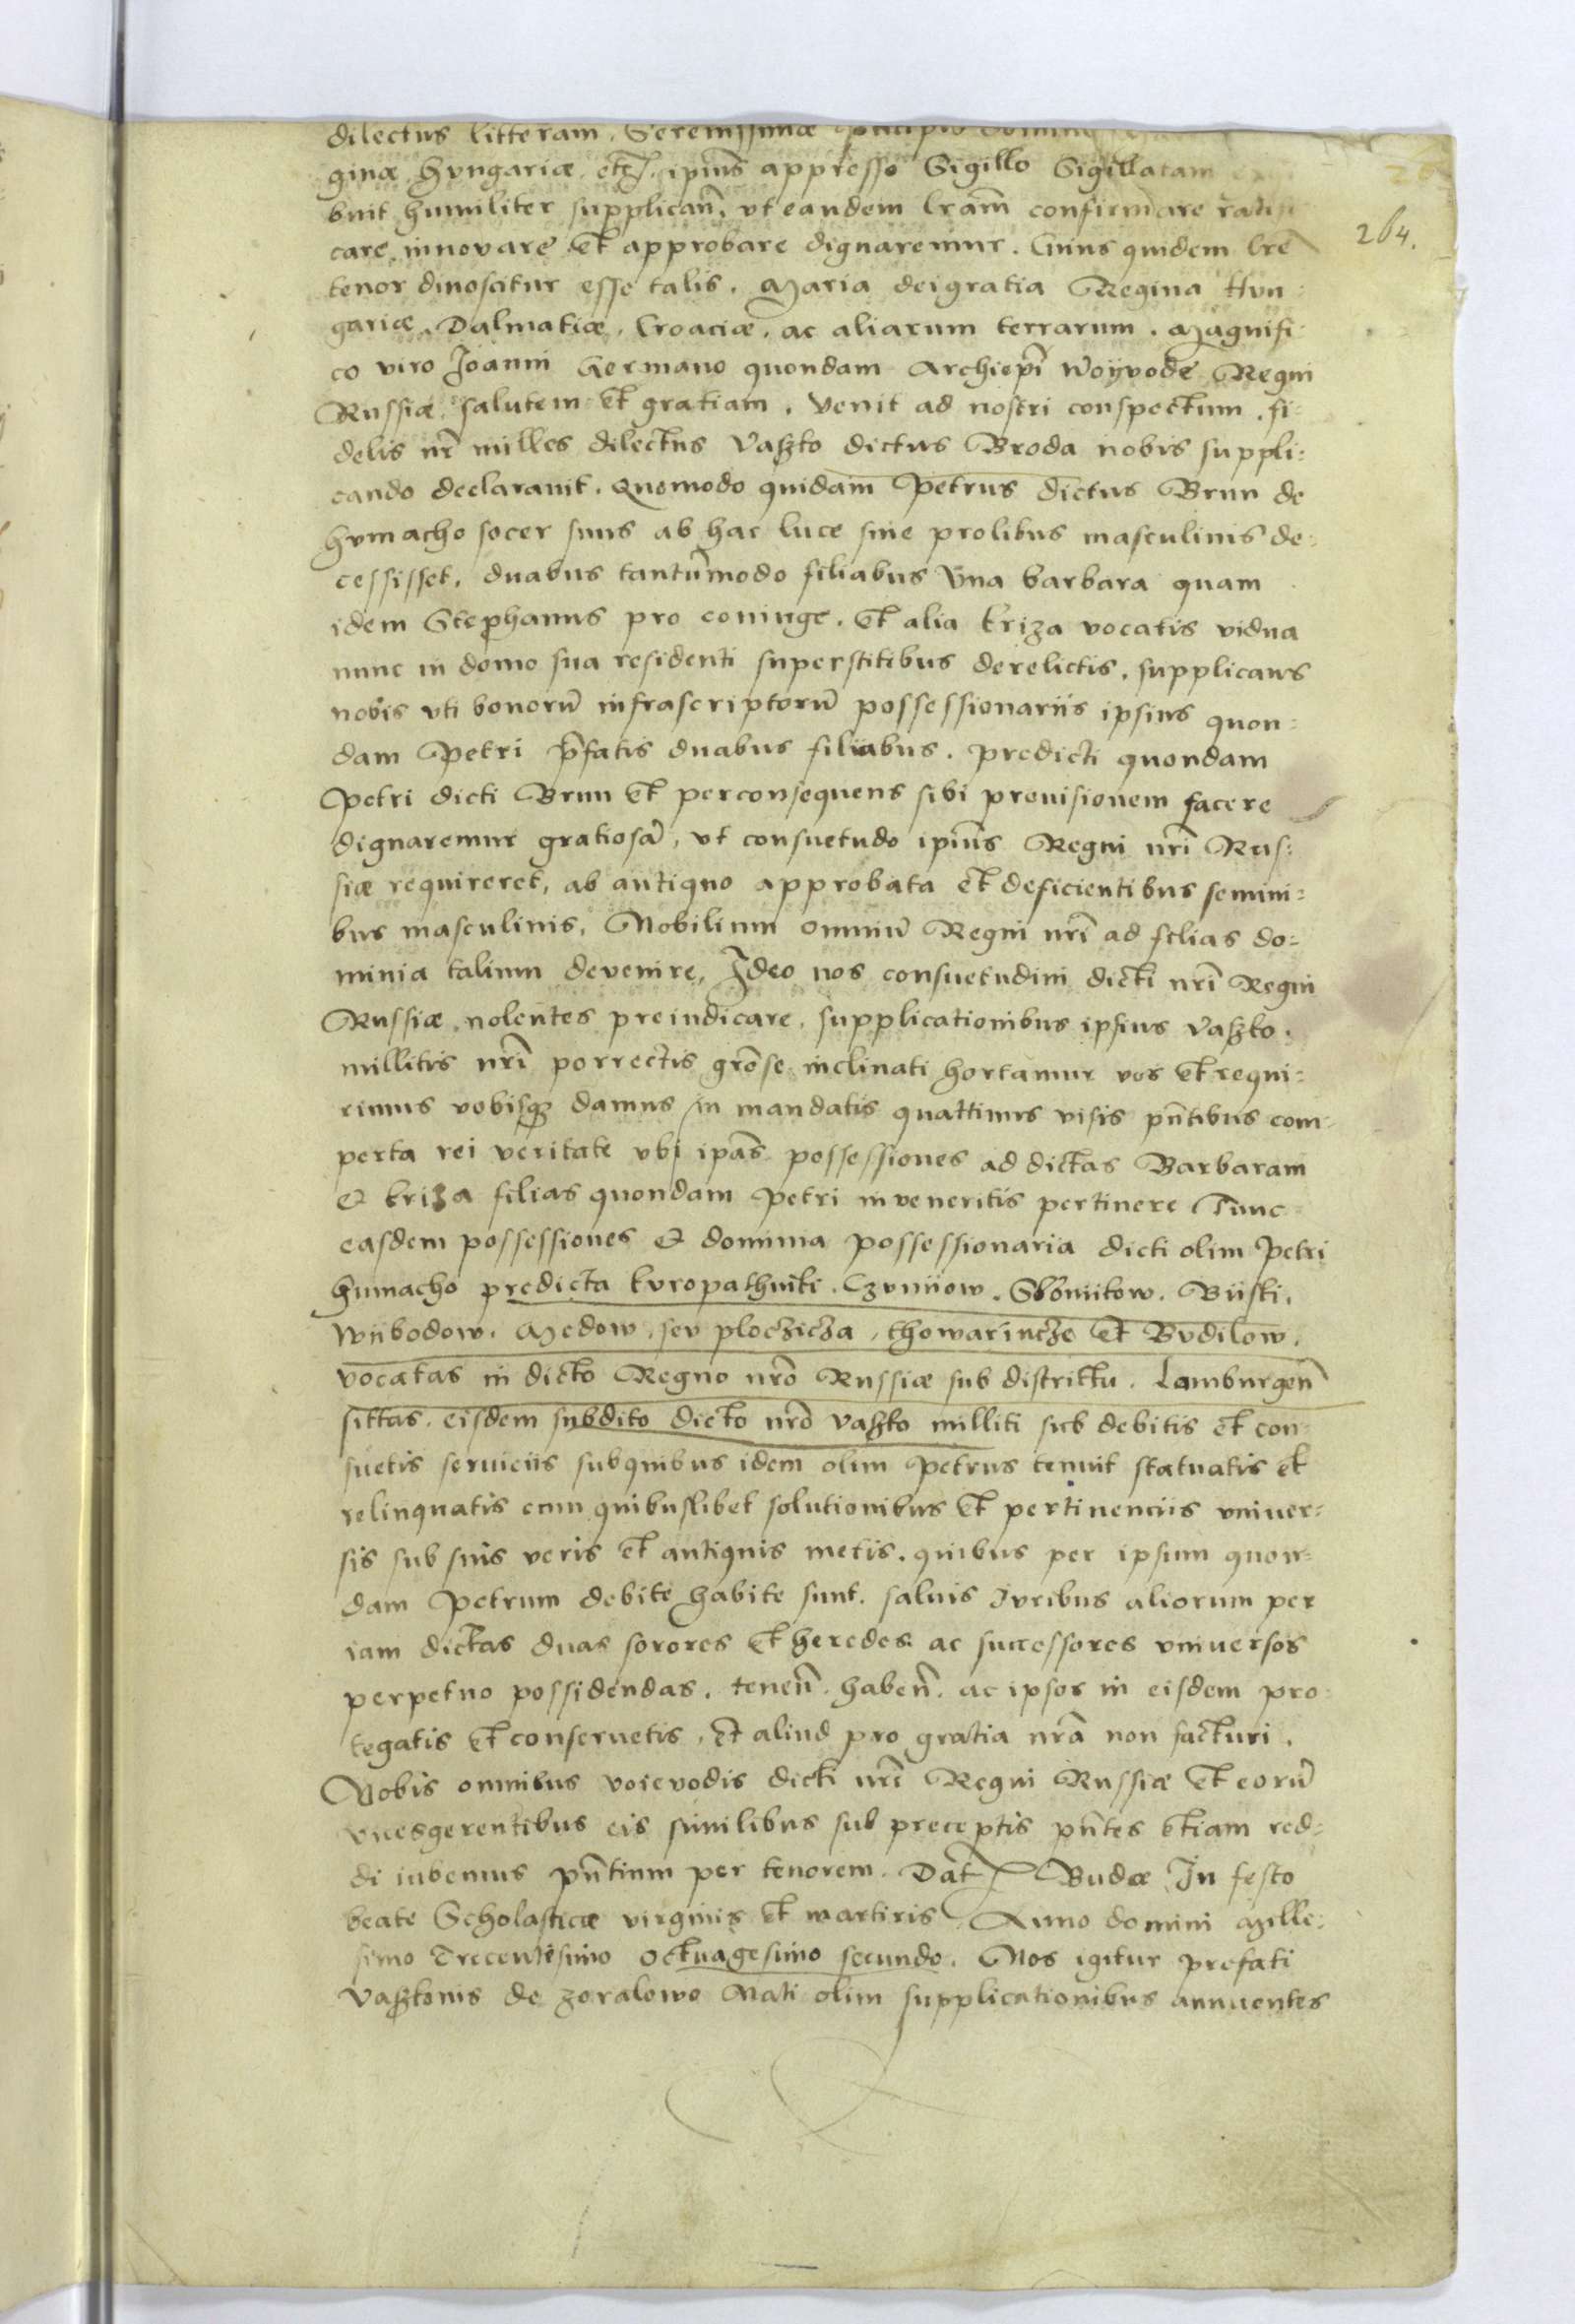 dilectus litteram. Serenissimæ
ginæ Hvngariæ etc. ipius appresso Sigillo Sigillatam
buit humiliter supplican̄. vt eandem lram̄ confirmare ratifi
care, innovare Et approbare dignaremur. Cuius quidem lre
264.
tenor dinoscitur esse talis. Maria dei gratia Regina Hvn:
gariæ, Dalmatiæ, Croaciæ, ac aliarum terrarum. Magnifi:
co viro Joanni Germano quondam Archiepi̅ Woÿvode Regni
Russiæ salutem Et gratiam. Venit ad nostri conspectum, fi:
delis nr̄ milles dilectus Vaßko dictus Broda nobis suppli:
cando declaravit. Quomodo quidam Petrus dictus Brun de
hvmacho socer suus ab hac luce sine prolibus masculinis de:
cessisset, duabus tantum̄modo filiabus Vna barbara quam
idem Stephanus pro coniuge, Et alia kriza vocatis vidua
nunc in domo sua residenti superstitibus derelictis, supplicans
nobis vti bonorū infrascriptorū possessionariis ipsius quon:
dam Petri p̄fatis duabus filiabus. predicti quondam
Petri dicti Brun Et perconsequens sibi prouisionem facere
dignaremur gratiosā, vt consvetudo ipius Regni nr̄i Rus:
siæ requireret, ab antiquo approbata Et deficientibus semini:
bus masculinis, Nobilium omniū Regni nr̄i ad filias do:
minia talium devenire, Ideo nos consuetudini dicti nr̄i Regni
Russiæ nolentes preiudicare, supplicationibus ipsius Vaßko.
millitis nr̄i porrectis grōse inclinati hortamur vos Et requi:
rimus vobisq̄ damus in mandatis quattinus visis pn̄tibus com:
perta rei veritate vbi ipas̄ possessiones ad dictas Barbaram
& kriza filias quondam Petri inveneritis pertinere Tunc
easdem possessiones & dominia possessionaria dicti olim Petri
humacho predicta kvropathniki. Czvniow. Slomitow. Biiski.
Wiibodow. Medow, sev ploczicza, thowarincze Et Bvdilow.
vocatas in dicto Regno nrō Russiæ sub districtu. Lamburgen̄
sittas, eisdem subdito dicto nrō vaßko milliti sub debitis Et con:
suetis seruiciis sub quibus idem olim Petrus tenuit statuatis Et
relinquatis cum quibuslibet solutionibus Et pertinenciis vniuer:
sis sub suis veris Et antiquis metis. quibus per ipsum quon:
dam Petrum debite habite sunt. saluis Ivribus aliorum per
iam dictas duas sorores Et heredes ac successores vniuersos
perpetuo possidendas, tenen̄. haben̄. ac ipsos in eisdem pro:
tegatis Et conseruetis, Et aliud pro gratia nrā non facturi.
Vobis omnibus voievodis dicti nr̄i Regni Russiæ Et eorū
vicesgerentibus eis similibus sub preceptis pn̄tes Etiam red:
di iubemus pn̄tium per tenorem. Dat Budæ In festo
beate Scholasticæ virginis Et martiris Anno domini Mille:
simo Trecentesimo Octuagesimo secundo. Nos igitur prefati
Vaßkonis de zoralowo Nati olim supplicationibus annuentes